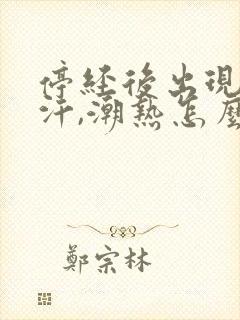 停經後出現
汗,潮熱怎麼
鄭宗林